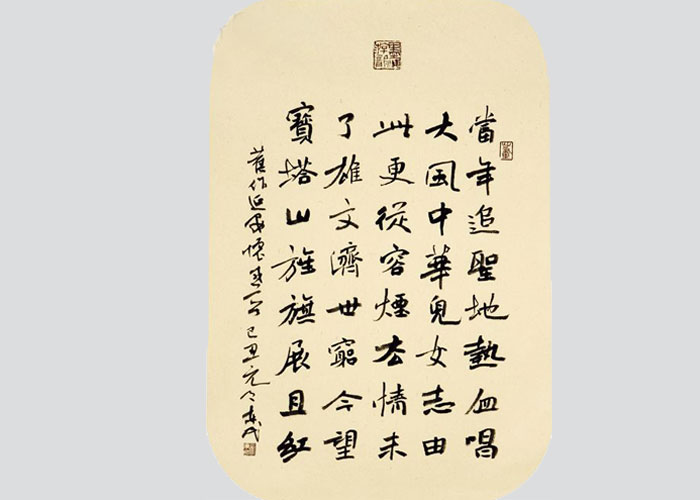 當年追聖地熱血唱
大風中華兒女志由
此更從容煙去情未
了雄文濟世窮今望
寶塔山旌旗展且紅
舊作延安懷 己丑元